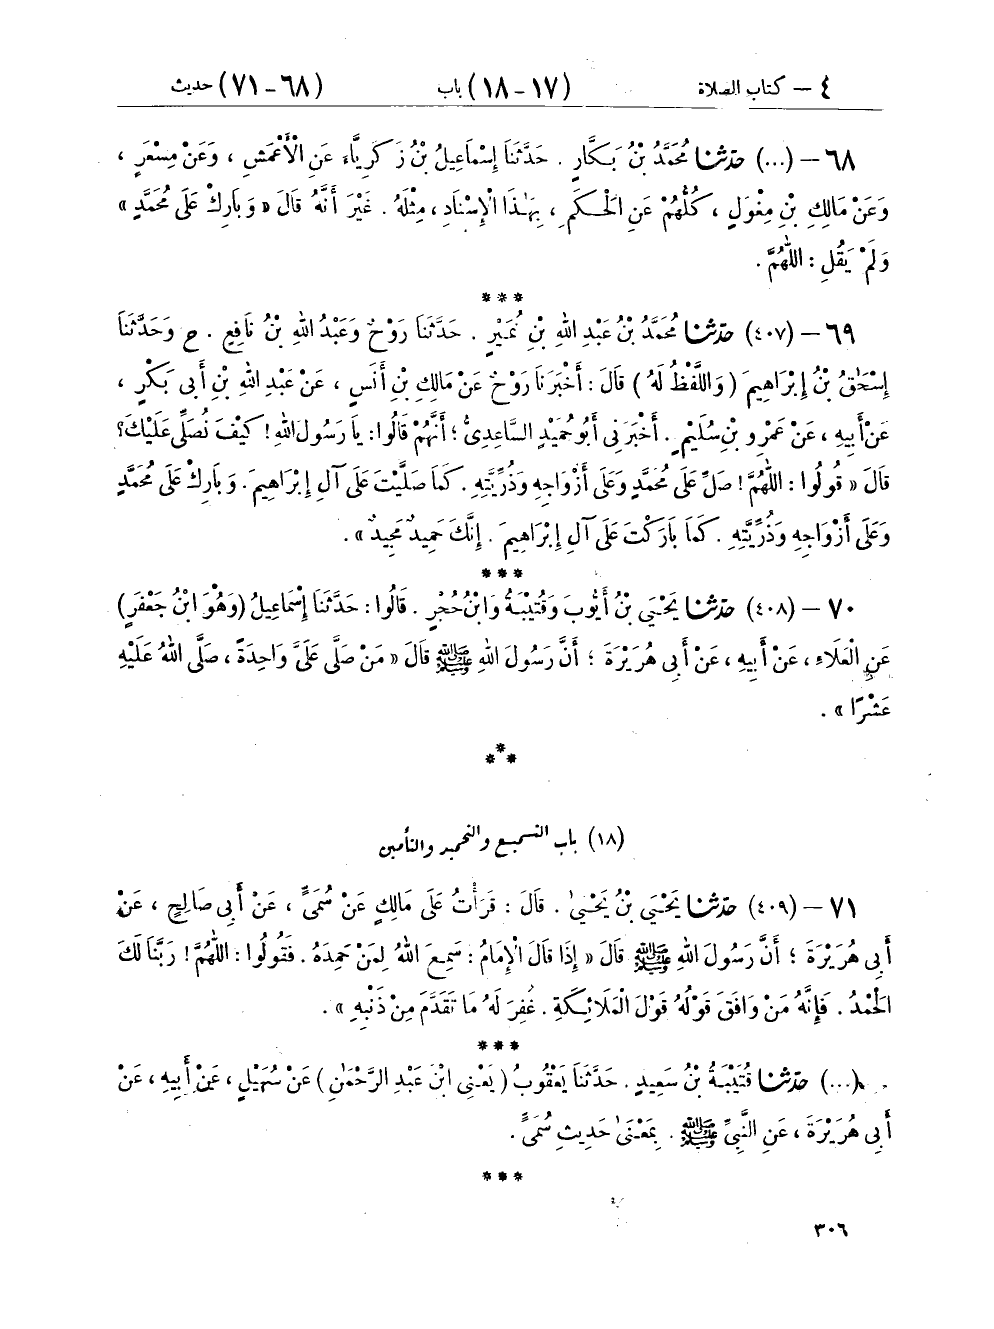 ٤ — كتاب الصلاة (١٧-١٨) باب (٦٨-٧١) حديث
٦٨ — (...) حَدَّثَنَا مُحَمَّدُ بْنُ بَكَّارٍ . حَدَّثَنَا إِسْمَاعِيلُ بْنُ زَكَرِيَّاءَ عَنِ الْأَعْمَشِ ، وَعَنْ مِسْعَرٍ ،
وَعَنْ مَالِكِ بْنِ مِغْوَلٍ ، كُلُّهُمْ عَنِ الْحَكَمِ ، بِهَـٰذَا الْإِسْنَادِ ، مِثْلَهُ . غَيْرَ أَنَّهُ قَالَ « وَبَارِكْ عَلَى مُحَمَّدٍ »
وَلَمْ يَقُلِ : اللَّهُمَّ .
***
٦٩ — (٤٠٧) حَدَّثَنَا مُحَمَّدُ بْنُ عَبْدِ اللهِ بْنِ نُمَيْرٍ . حَدَّثَنَا رَوْحٌ وَعَبْدُ اللهِ بْنُ نَافِعٍ . ح وَحَدَّثَنَا
إِسْحَاقُ بْنُ إِبْرَاهِيمَ ( وَاللَّفْظُ لَهُ ) قَالَ : أَخْبَرَنَا رَوْحٌ عَنْ مَالِكِ بْنِ أَنَسٍ ، عَنْ عَبْدِ اللهِ بْنِ أَبِي بَكْرٍ ،
عَنْ أَبِيهِ ، عَنْ عَمْرِو بْنِ سُلَيْمٍ . أَخْبَرَنِي أَبُو حُمَيْدٍ السَّاعِدِيُّ ؛ أَنَّهُمْ قَالُوا : يَا رَسُولَ اللهِ ! كَيْفَ نُصَلِّي عَلَيْكَ ؟
قَالَ « قُولُوا : اللَّهُمَّ ! صَلِّ عَلَى مُحَمَّدٍ وَعَلَى أَزْوَاجِهِ وَذُرِّيَّتِهِ . كَمَا صَلَّيْتَ عَلَى آلِ إِبْرَاهِيمَ . وَبَارِكْ عَلَى مُحَمَّدٍ
وَعَلَى أَزْوَاجِهِ وَذُرِّيَّتِهِ . كَمَا بَارَكْتَ عَلَى آلِ إِبْرَاهِيمَ . إِنَّكَ حَمِيدٌ مَجِيدٌ » .
***
٧٠ — (٤٠٨) حَدَّثَنَا يَحْيَى بْنُ أَيُّوبَ وَقُتَيْبَةُ وَابْنُ حُجْرٍ . قَالُوا : حَدَّثَنَا إِسْمَاعِيلُ (وَهُوَ ابْنُ جَعْفَرٍ)
عَنِ الْعَلَاءِ ، عَنْ أَبِيهِ ، عَنْ أَبِي هُرَيْرَةَ ؛ أَنَّ رَسُولَ اللهِ ﷺ قَالَ « مَنْ صَلَّى عَلَيَّ وَاحِدَةً ، صَلَّى اللهُ عَلَيْهِ
عَشْرًا » .
***
(١٨) باب التسميع والتحميد والتأمين
٧١ — (٤٠٩) حَدَّثَنَا يَحْيَى بْنُ يَحْيَىٰ . قَالَ : قَرَأْتُ عَلَى مَالِكٍ عَنْ سُمَيٍّ ، عَنْ أَبِي صَالِحٍ ، عَنْ
أَبِي هُرَيْرَةَ ؛ أَنَّ رَسُولَ اللهِ ﷺ قَالَ « إِذَا قَالَ الْإِمَامُ : سَمِعَ اللهُ لِمَنْ حَمِدَهُ . فَقُولُوا : اللَّهُمَّ ! رَبَّنَا لَكَ
الْحَمْدُ . فَإِنَّهُ مَنْ وَافَقَ قَوْلُهُ قَوْلَ الْمَلَائِكَةِ . غُفِرَ لَهُ مَا تَقَدَّمَ مِنْ ذَنْبِهِ » .
***
(...) حَدَّثَنَا قُتَيْبَةُ بْنُ سَعِيدٍ . حَدَّثَنَا يَعْقُوبُ ( يَعْنِي ابْنَ عَبْدِ الرَّحْمَٰنِ ) عَنْ سُهَيْلٍ ، عَنْ أَبِيهِ ، عَنْ
أَبِي هُرَيْرَةَ ، عَنِ النَّبِيِّ ﷺ . بِمَعْنَىٰ حَدِيثِ سُمَيٍّ .
***
٣٠٦